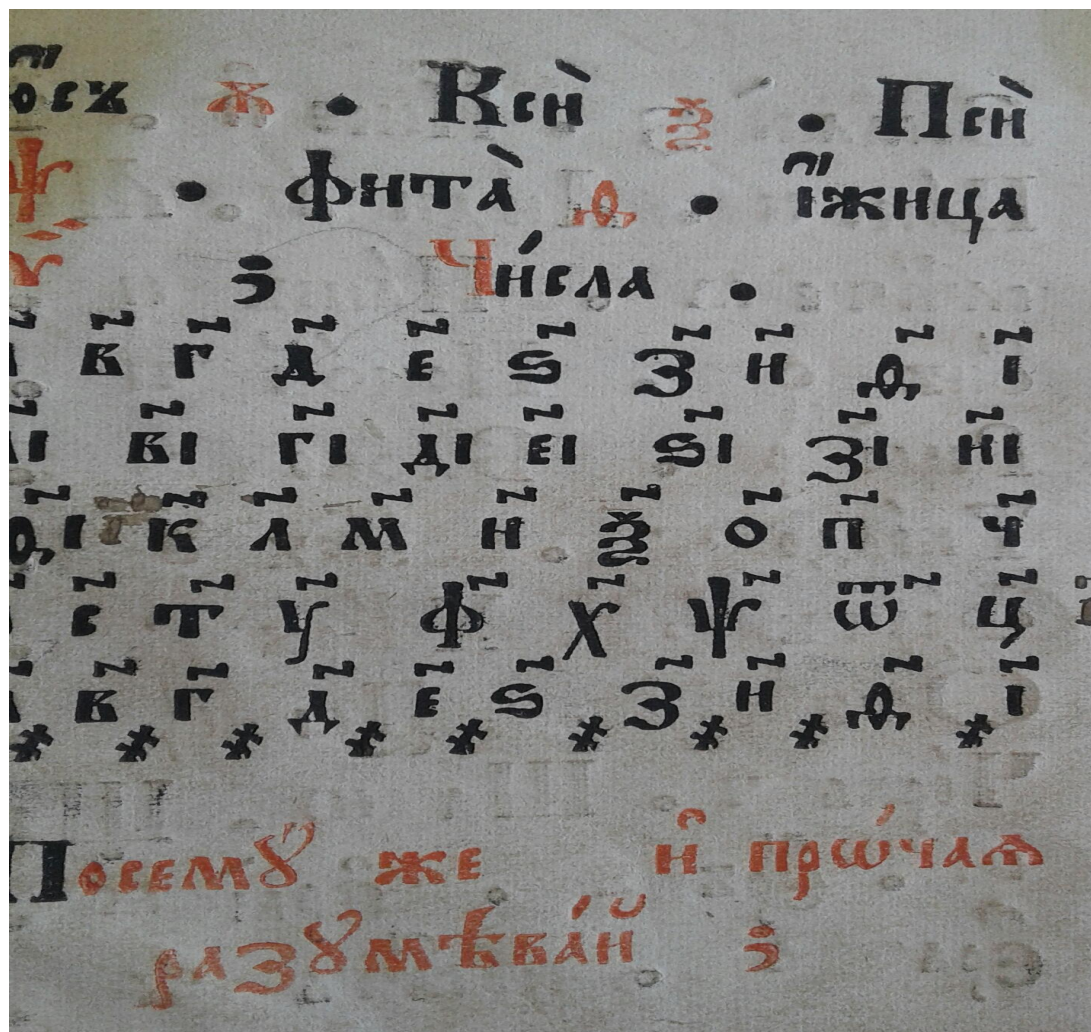 юсъ ѫ • Ксѝ ѯ • Псѝ
ѱ • Фита̀ ѳ • і҆жица
ѵ ; Чи́сла •
в҃ г҃ д҃ є҃ ѕ҃ з҃ и҃ ѳ҃ і҃
а҃і в҃і г҃і д҃і є҃і ѕ҃і з҃і и҃і
ѳ҃і к҃ л҃ м҃ н҃ ѯ҃ о҃ п҃ ч҃
с҃ т҃ у҃ ф҃ х҃ ѱ҃ ѿ҃ ц҃
в҃ г҃ д҃ є҃ ѕ҃ з҃ и҃ ѳ҃ і҃
Посемꙋ же и҆ прѡ́чаѧ
разꙋмѣва́й ;